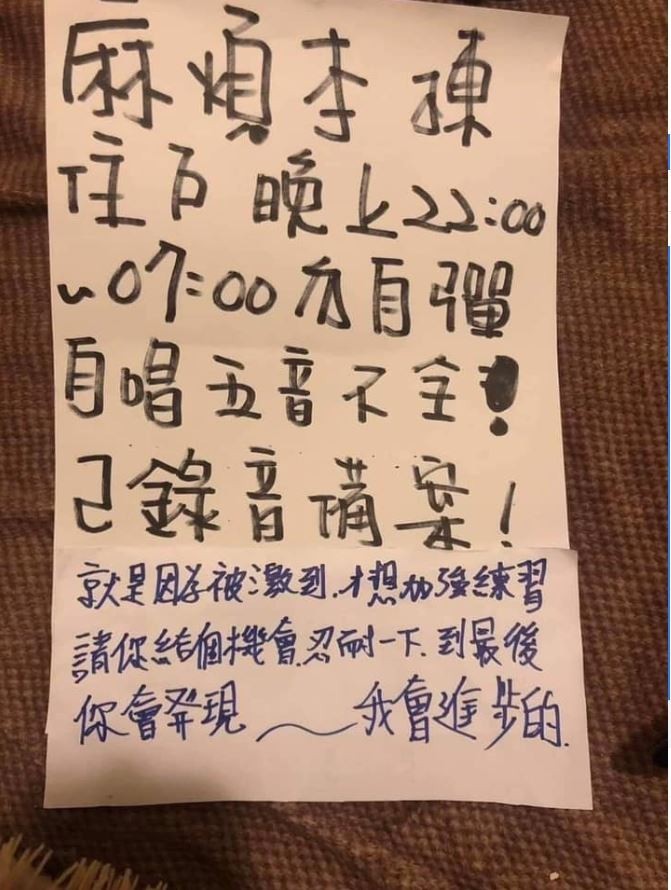 麻煩本棟
住戶 晚上22:00
~07:00 勿自彈
自唱五音不全!
己錄音備案!
就是因為被激到.才想加強練習
請你給個機會.忍耐一下.到最後
你會發現～我會進步的.